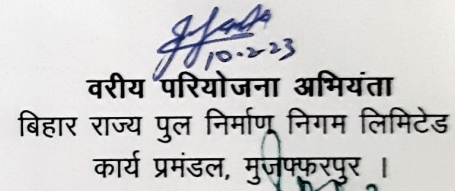 10.2.23
वरीय परियोजना अभियंता
बिहार राज्य पुल निर्माण निगम लिमिटेड
कार्य प्रमंडल, मुजफ्फरपुर ।